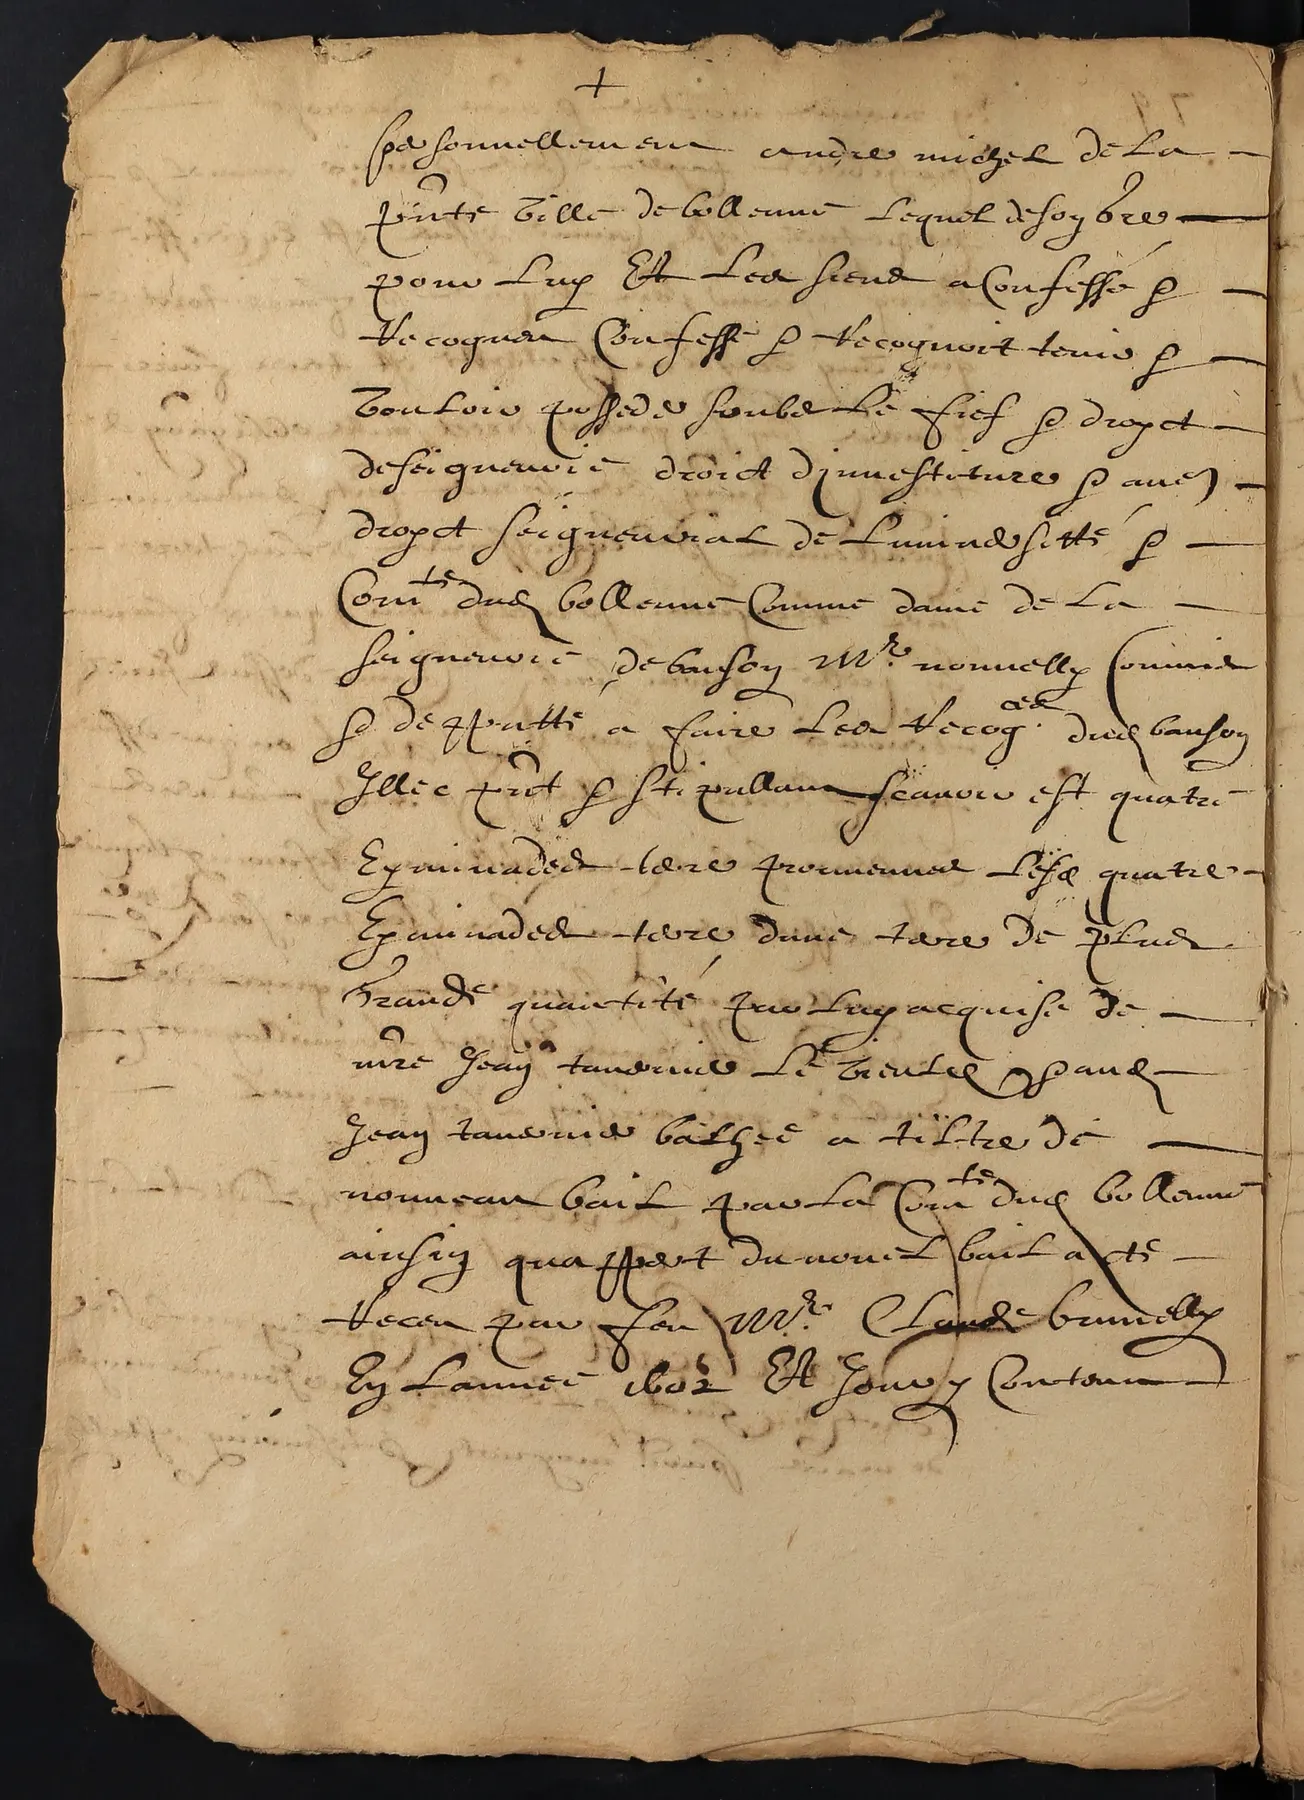 +
personnellement andre michel de la
pñte ville de bollenne lequel de son gre
pour luy Et les siens a Confessé &
Recogneu Confesse & Recognoit tenir &
voulloir posseder soubz le fief & droyct
de seigneurie droict d'investiture & aue
droyct seigneurial de luniuersitté &
Comte dud bollenne Comme dame de la
seigneurie de bauson Mr nouuelly Commis
& deputté a faire les Recogces dud bauson
Illec pñt & stipullant scauoir est quatre
Eyminades terre prouenues lesd quatre
Eyminades terre dune terre de plus
Grande quantité par luy acquise de
mre Jean tauernier le vieulx & aud
Jean tauernier bailhée a tiltre de
nouueau bail par la Comte dud bollenne
ainsin quappert du nouel bail acte
Receu par feu Mr Claude brunelly
En lannee 1602 Et Jour y Contenu